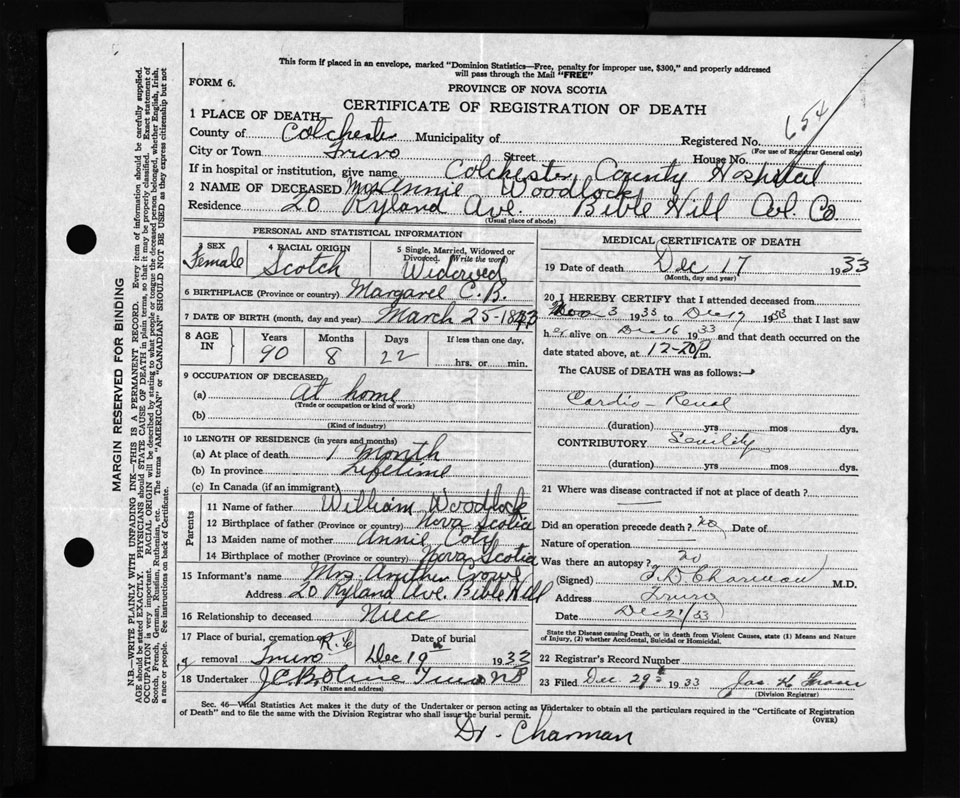 This form if placed in an envelope, marked "Dominion Statistics—Free, penalty for improper use, $300," and properly addressed
will pass through the Mail "FREE"
FORM 6.
PROVINCE OF NOVA SCOTIA
CERTIFICATE OF REGISTRATION OF DEATH
654
1 PLACE OF DEATH
County of Colchester Municipality of Registered No.
(For use of Registrar General only)
City or Town Truro Street House No.
If in hospital or institution, give name Colchester County Hospital
2 NAME OF DECEASED Mrs Annie Woodlock
Residence 20 Ryland Ave. Bible Hill Col. Co
(Usual place of abode)
PERSONAL AND STATISTICAL INFORMATION
3 SEX
Female
4 RACIAL ORIGIN
Scotch
5 Single, Married, Widowed or
Divorced. (Write the word)
Widowed
6 BIRTHPLACE (Province or country) Margaree C. B.
7 DATE OF BIRTH (month, day and year) March 25-1843
8 AGE IN
Years Months Days If less than one day,
90 8 22 hrs. or min.
9 OCCUPATION OF DECEASED
(a) At home
(Trade or occupation or kind of work)
(b)
(Kind of industry)
10 LENGTH OF RESIDENCE (in years and months)
(a) At place of death 1 Month
(b) In province Lifetime
(c) In Canada (if an immigrant)
Parents
11 Name of father William Woodlock
12 Birthplace of father (Province or country) Nova Scotia
13 Maiden name of mother Annie
14 Birthplace of mother (Province or country) Nova Scotia
15 Informant's name Mrs
Address 20 Ryland Ave. Bible Hill
16 Relationship to deceased Niece
17 Place of burial, cremation R.C. Date of burial
or removal Truro Dec 19th 1933
18 Undertaker Truro NS
(Name and address)
MEDICAL CERTIFICATE OF DEATH
19 Date of death Dec 17 1933
(Month, day and year)
20 I HEREBY CERTIFY that I attended deceased from
3 1933 to Dec 17 1933 that I last saw
her alive on Dec 16 1933 and that death occurred on the
date stated above, at 12-20 p m.
The CAUSE of DEATH was as follows:
Cardio-Renal
(duration) yrs mos dys.
CONTRIBUTORY Senility
(duration) yrs mos dys.
21 Where was disease contracted if not at place of death?
Did an operation precede death? no Date of
Nature of operation
Was there an autopsy? no
(Signed) Charman M.D.
Address Truro
Date Dec 21/33
State the Disease causing Death, or in death from Violent Causes, state (1) Means and Nature
of Injury, (2) whether Accidental, Suicidal or Homicidal.
22 Registrar's Record Number
23 Filed Dec. 29th 1933 Jas. H
(Division Registrar)
Sec. 46—Vital Statistics Act makes it the duty of the Undertaker or person acting as Undertaker to obtain all the particulars required in the "Certificate of Registration
of Death" and to file the same with the Division Registrar who shall issue the burial permit.
(OVER)
Dr. Charman
MARGIN RESERVED FOR BINDING
N.B.—WRITE PLAINLY WITH UNFADING INK—THIS IS A PERMANENT RECORD. Every item of information should be carefully supplied.
AGE should be stated EXACTLY. PHYSICIANS should STATE CAUSE OF DEATH in plain terms, so that it may be properly classified. Exact statement of
OCCUPATION is very important. RACIAL ORIGIN will be described by stating to what people or tongue the deceased person belonged, whether English, Irish,
Scotch, French, German, Russian, Ruthenian, etc. The terms "AMERICAN" or "CANADIAN" SHOULD NOT BE USED as they express citizenship but not
a race or people. See instructions on back of Certificate.